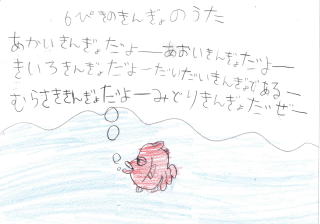 6ぴきのきんぎょのうた
あかいきんぎょだよーあおいきんぎょだよー
きいろきんぎょだよーだいだいきんぎょであるー
むらさききんぎょだよーみどりきんぎょだぜー